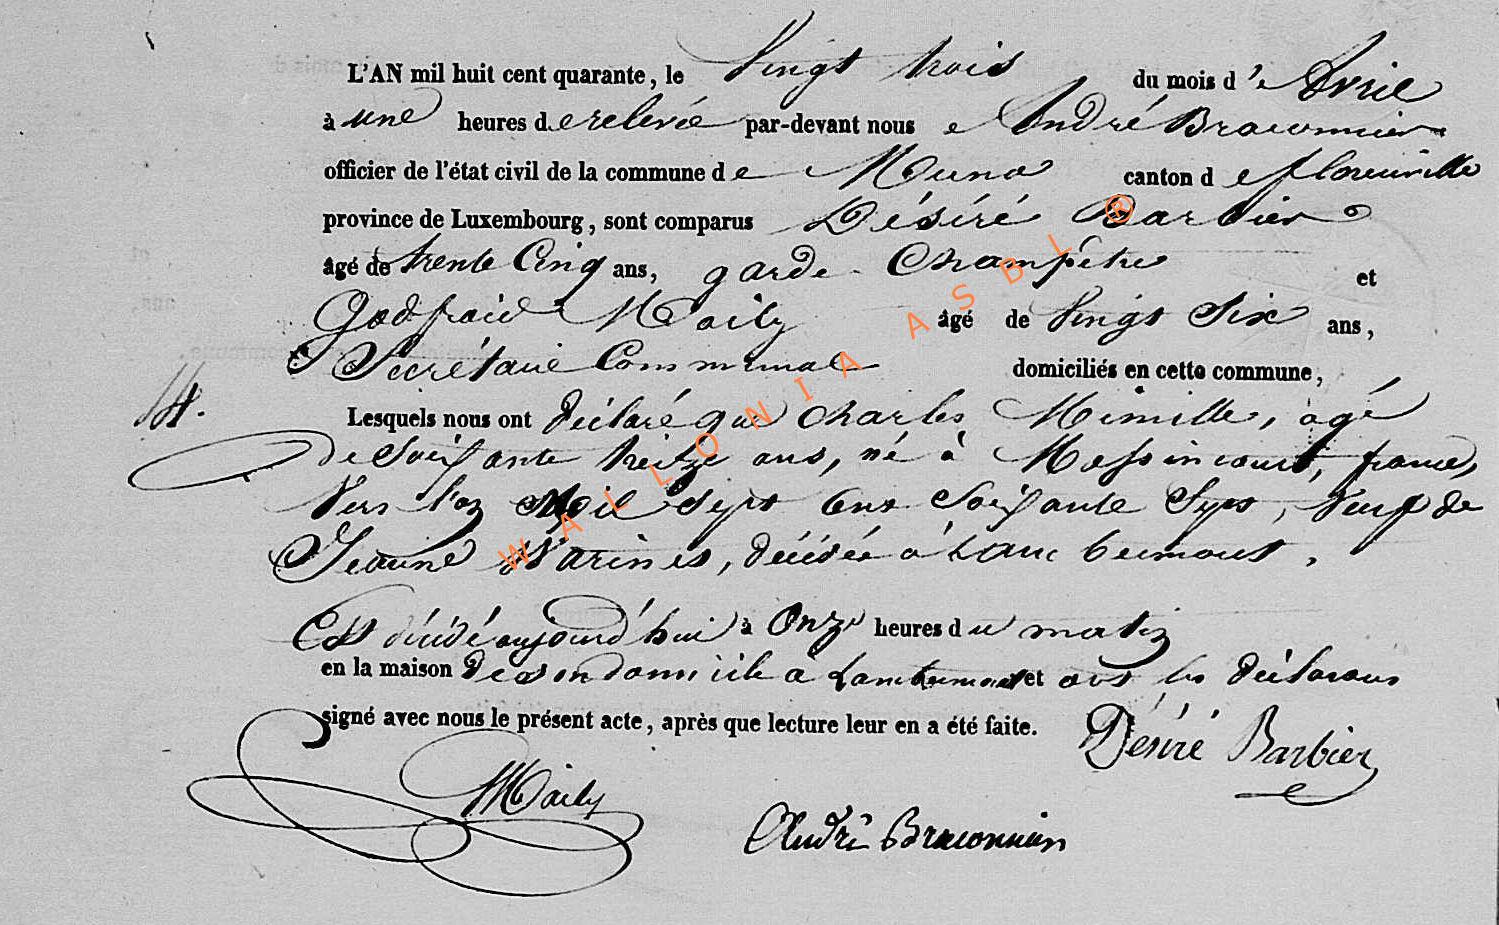 L'AN mil huit cent quarante, le Vingt trois du mois d'e Avril
à une heures de relevée par-devant nous André Braconnier
officier de l'état civil de la commune de Muno canton de florenville
province de Luxembourg, sont comparus Désiré Barbier
âgé de trente Cinq ans, garde Champêtre et
Godfroid Maily âgé de Vingt Six ans,
Secrétaire Communal domiciliés en cette commune,
14. Lesquels nous ont déclaré que Charles Mimille, agé
de Soissante treize ans, né à Messincourt, france,
Vers l'an Mil Sept Cent Soissante Sept, Veuf de
Jeanne Warines, décédée à
Est décédé aujourd'hui à Onze heures du matin
en la maison de son domicile à Lambermont et ont les déclarans
signé avec nous le présent acte, après que lecture leur en a été faite.
Désiré Barbier
Maily
André Braconnier
WALLONIA ASBL ®